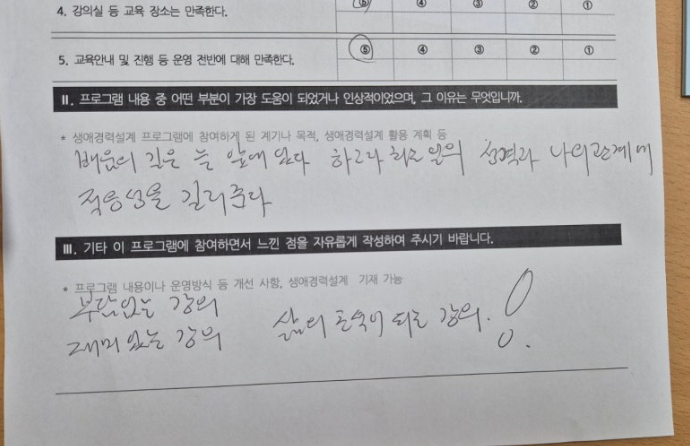 4. 강의실 등 교육 장소는 만족한다. ⑤ ④ ③ ② ①
5. 교육안내 및 진행 등 운영 전반에 대해 만족한다. ⑤ ④ ③ ② ①
II. 프로그램 내용 중 어떤 부분이 가장 도움이 되었거나 인상적이었으며, 그 이유는 무엇입니까.
* 생애경력설계 프로그램에 참여하게 된 계기나 목적, 생애경력설계 활용 계획 등
배움의 길은 늘 앞에 있다 성격과 나의관계에
적응성을 길러준다
III. 기타 이 프로그램에 참여하면서 느낀 점을 자유롭게 작성하여 주시기 바랍니다.
* 프로그램 내용이나 운영방식 등 개선 사항, 생애경력설계 기재 가능
부담없는 강의
재미있는 강의 삶의 되는 강의. !